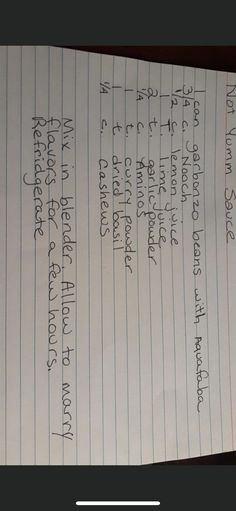 Not Yumm Sauce
1 can garbonzo beans with Aquafaba
3/4 c. Nooch
1/2 c. lemon juice
1 T. lime juice
2 t. garlic powder
1/4 c. Aminos
1 t. curry powder
1 t. dried basil
1/4 c. cashews
Mix in blender. Allow to marry
flavors for a few hours.
Refridgerate